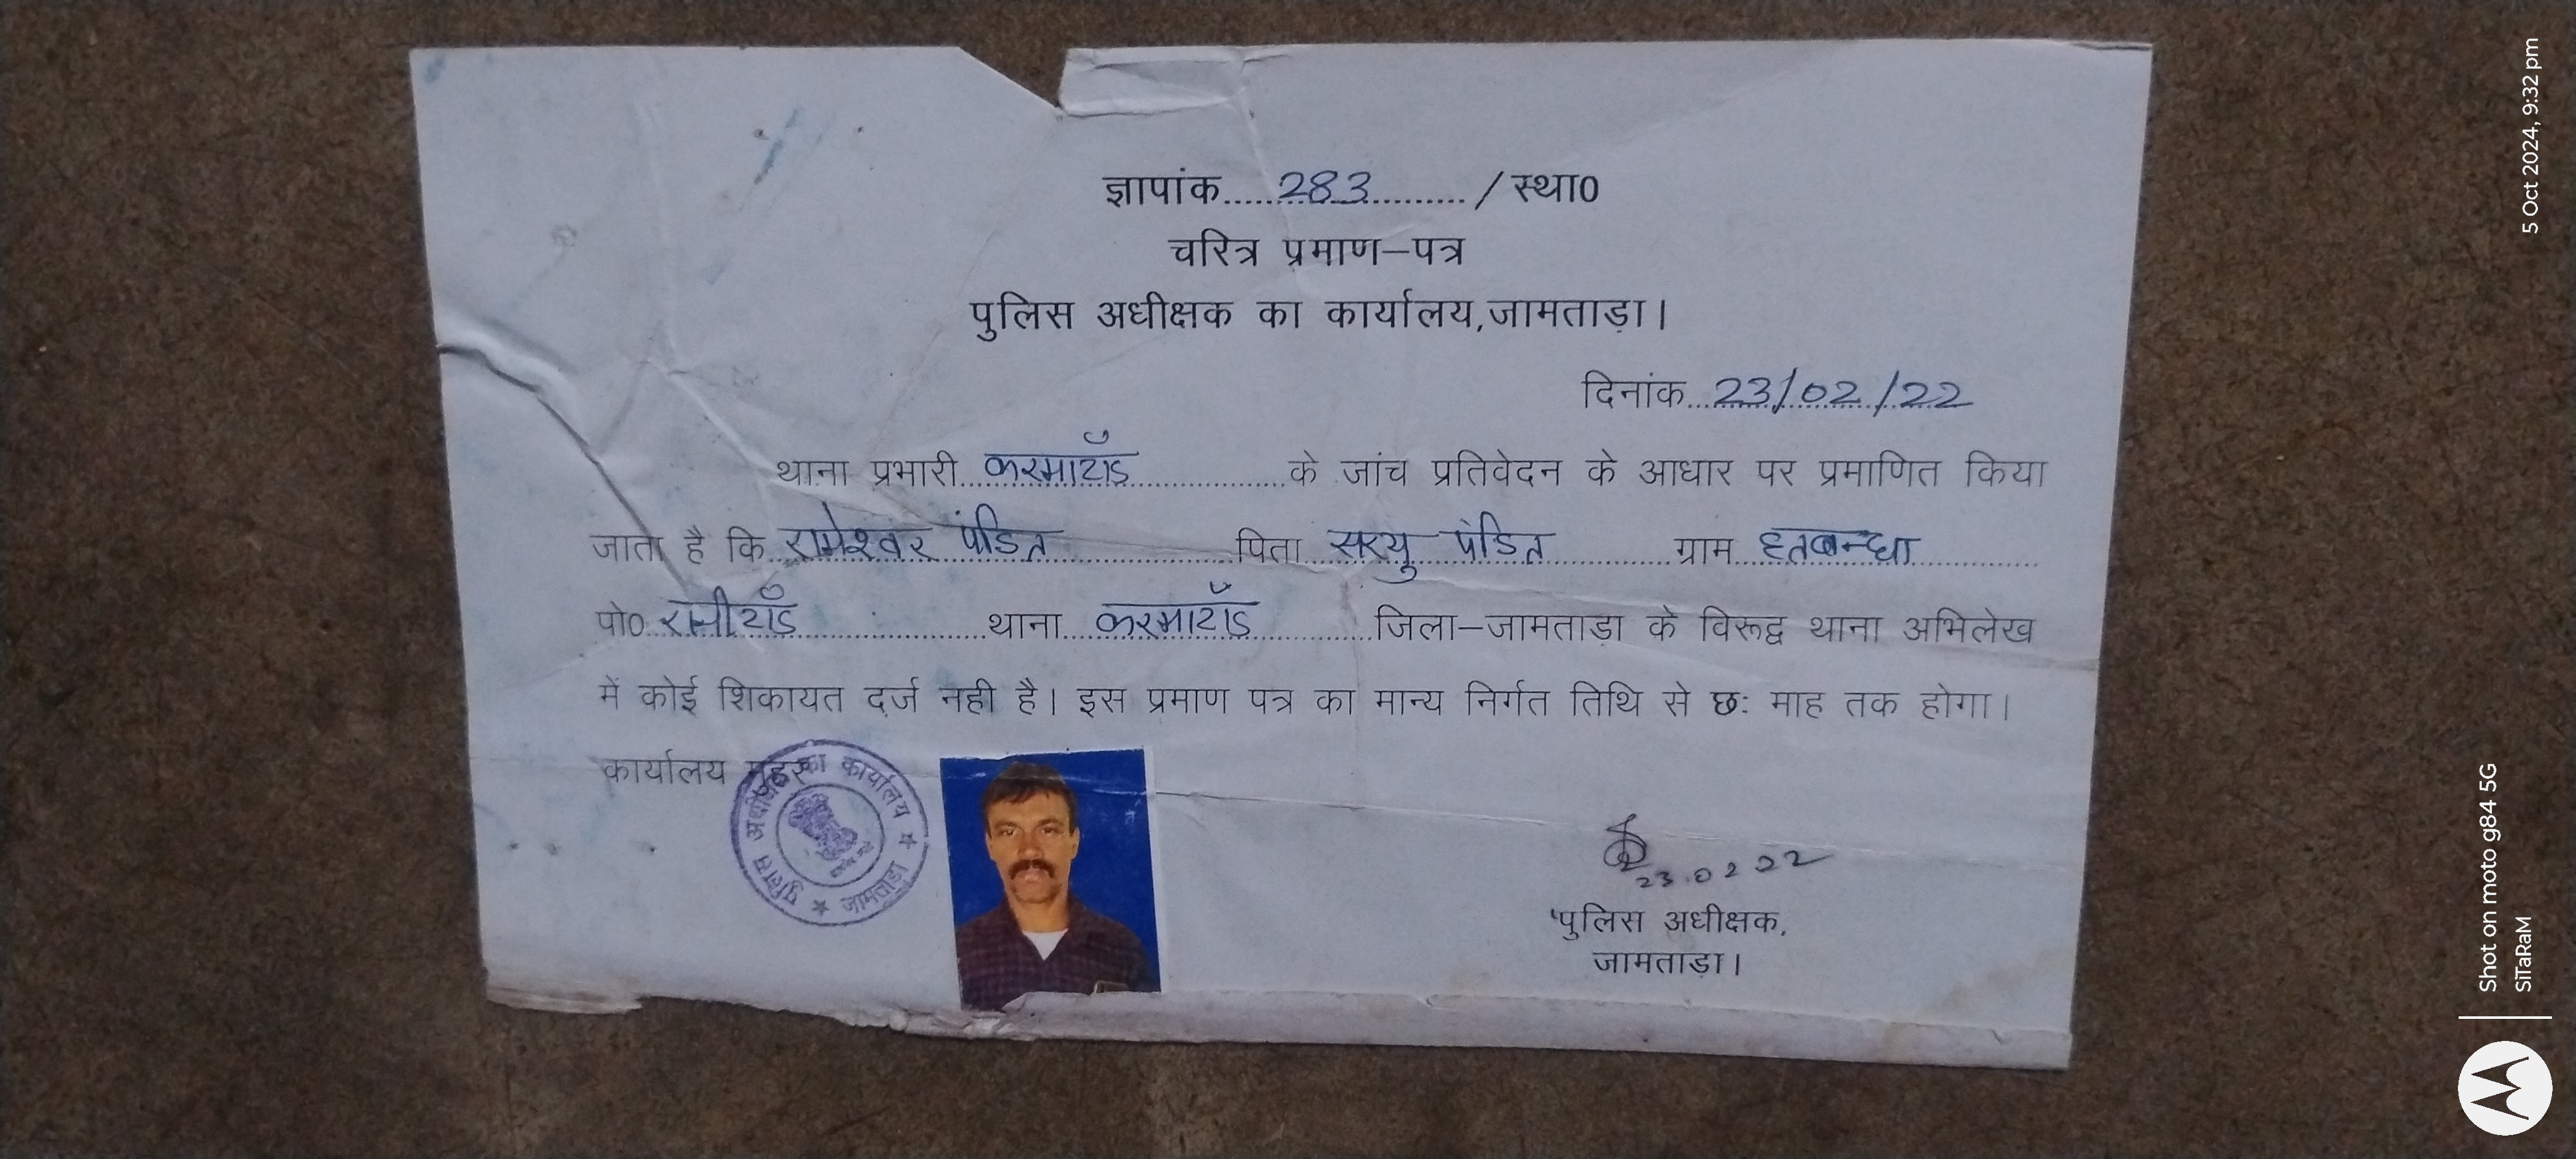 ज्ञापांक.....283.........../स्था0
चरित्र प्रमाण–पत्र
पुलिस अधीक्षक का कार्यालय,जामताड़ा।
दिनांक..23/02/22
थाना प्रभारी..करमाटाँड................के जांच प्रतिवेदन के आधार पर प्रमाणित किया
जाता है कि..रामेश्वर पंडित....................पिता..सरयु पंडित.............ग्राम..हतबन्धा..............
पो0..रानीटाँड....................थाना...करमाटाँड.............जिला–जामताड़ा के विरूद्व थाना अभिलेख
में कोई शिकायत दर्ज नही है। इस प्रमाण पत्र का मान्य निर्गत तिथि से छः माह तक होगा।
कार्यालय मुहर
पुलिस अधीक्षक का कार्यालय ★ जामताड़ा ★
23.02.22
पुलिस अधीक्षक,
जामताड़ा।
5 Oct 2024, 9:32 pm
Shot on moto g84 5G
SiTaRaM